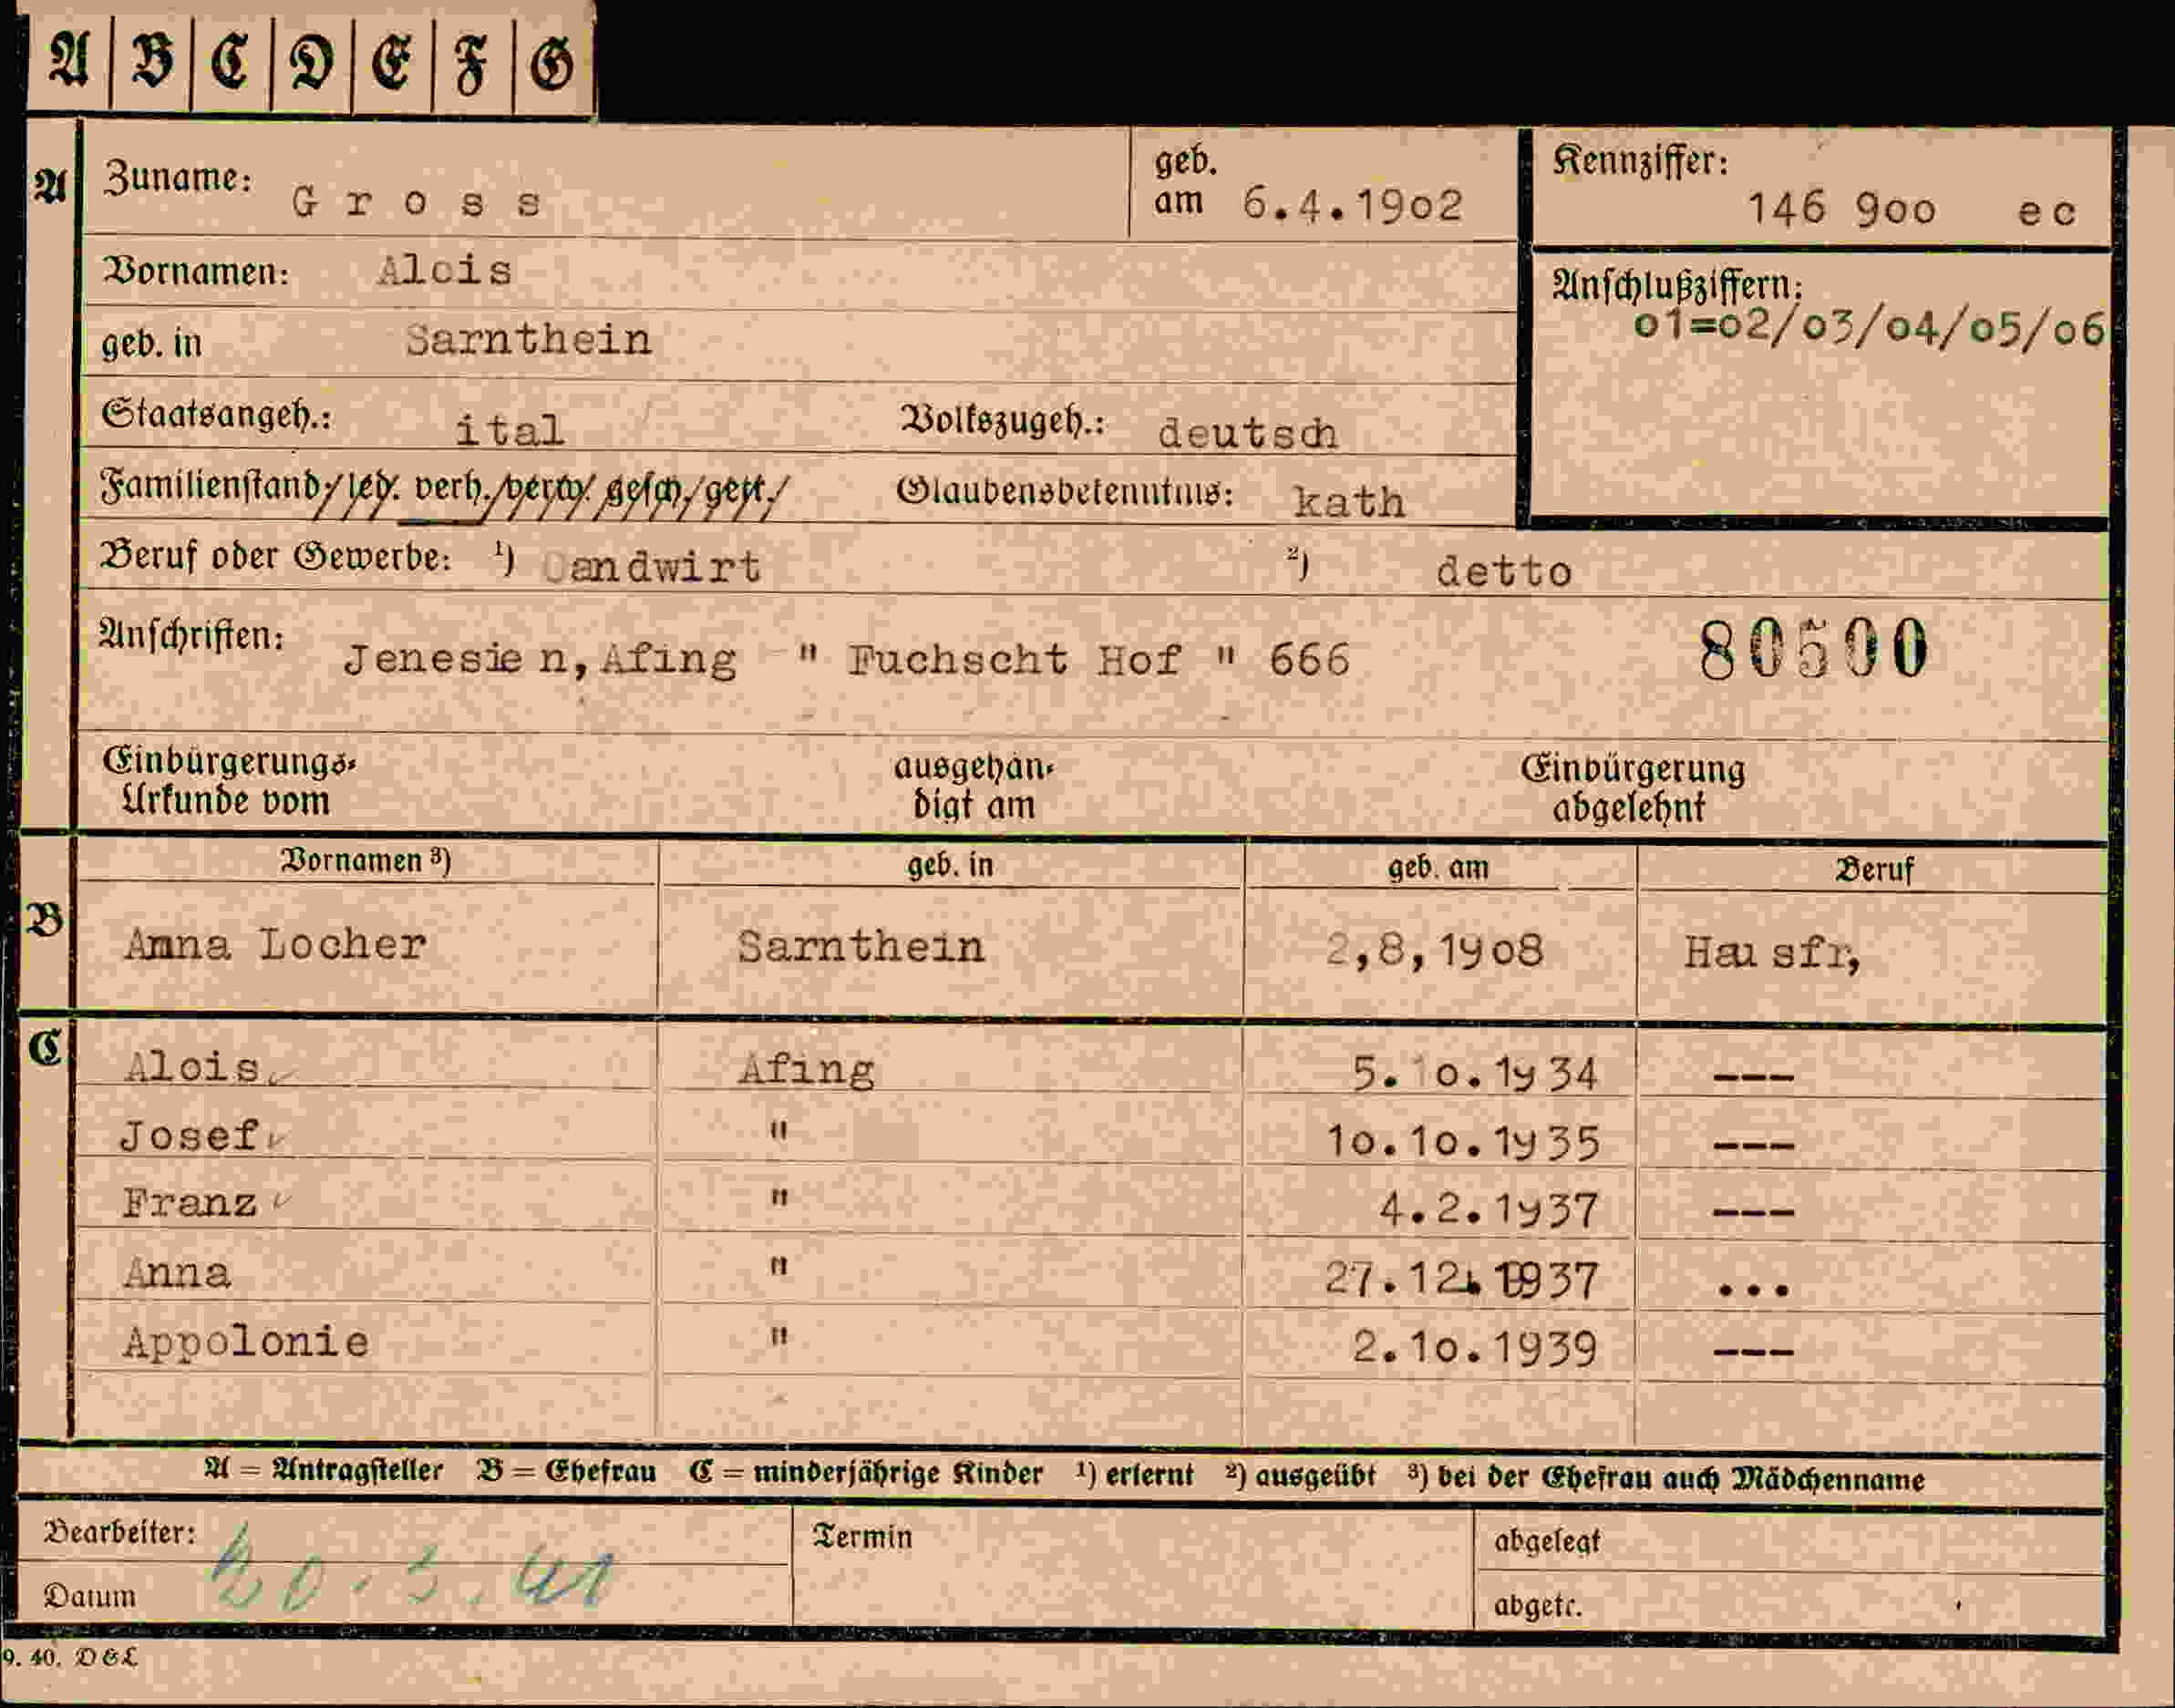 A B C D E F G
A Zuname: Gross geb. am 6.4.19o2 Kennziffer: 146 9oo ec
Vornamen: Alois Anschlußziffern:
o1=o2/o3/o4/o5/o6
geb. in Sarnthein
Staatsangeh.: ital Volkszugeh.: deutsch
Familienstand: led. verh. verw. gesch. getr. Glaubensbekenntnis: kath
Beruf oder Gewerbe: ¹) Landwirt ²) detto
Anschriften: Jenesien, Afing " Fuchscht Hof " 666 80500
Einbürgerungs- ausgehän- Einbürgerung
Urkunde vom digt am abgelehnt
Vornamen ³) geb. in geb. am Beruf
B Anna Locher Sarnthein 2,8,19o8 Hausfr,
C Alois Afing 5.1o.1934 ---
Josef " 1o.1o.1935 ---
Franz " 4.2.1937 ---
Anna " 27.12.1937 ...
Appolonie " 2.1o.1939 ---
A = Antragsteller B = Ehefrau C = minderjährige Kinder ¹) erlernt ²) ausgeübt ³) bei der Ehefrau auch Mädchenname
Bearbeiter: Termin abgelegt
Datum 20.3.41 abgetr.
9. 40. D&L